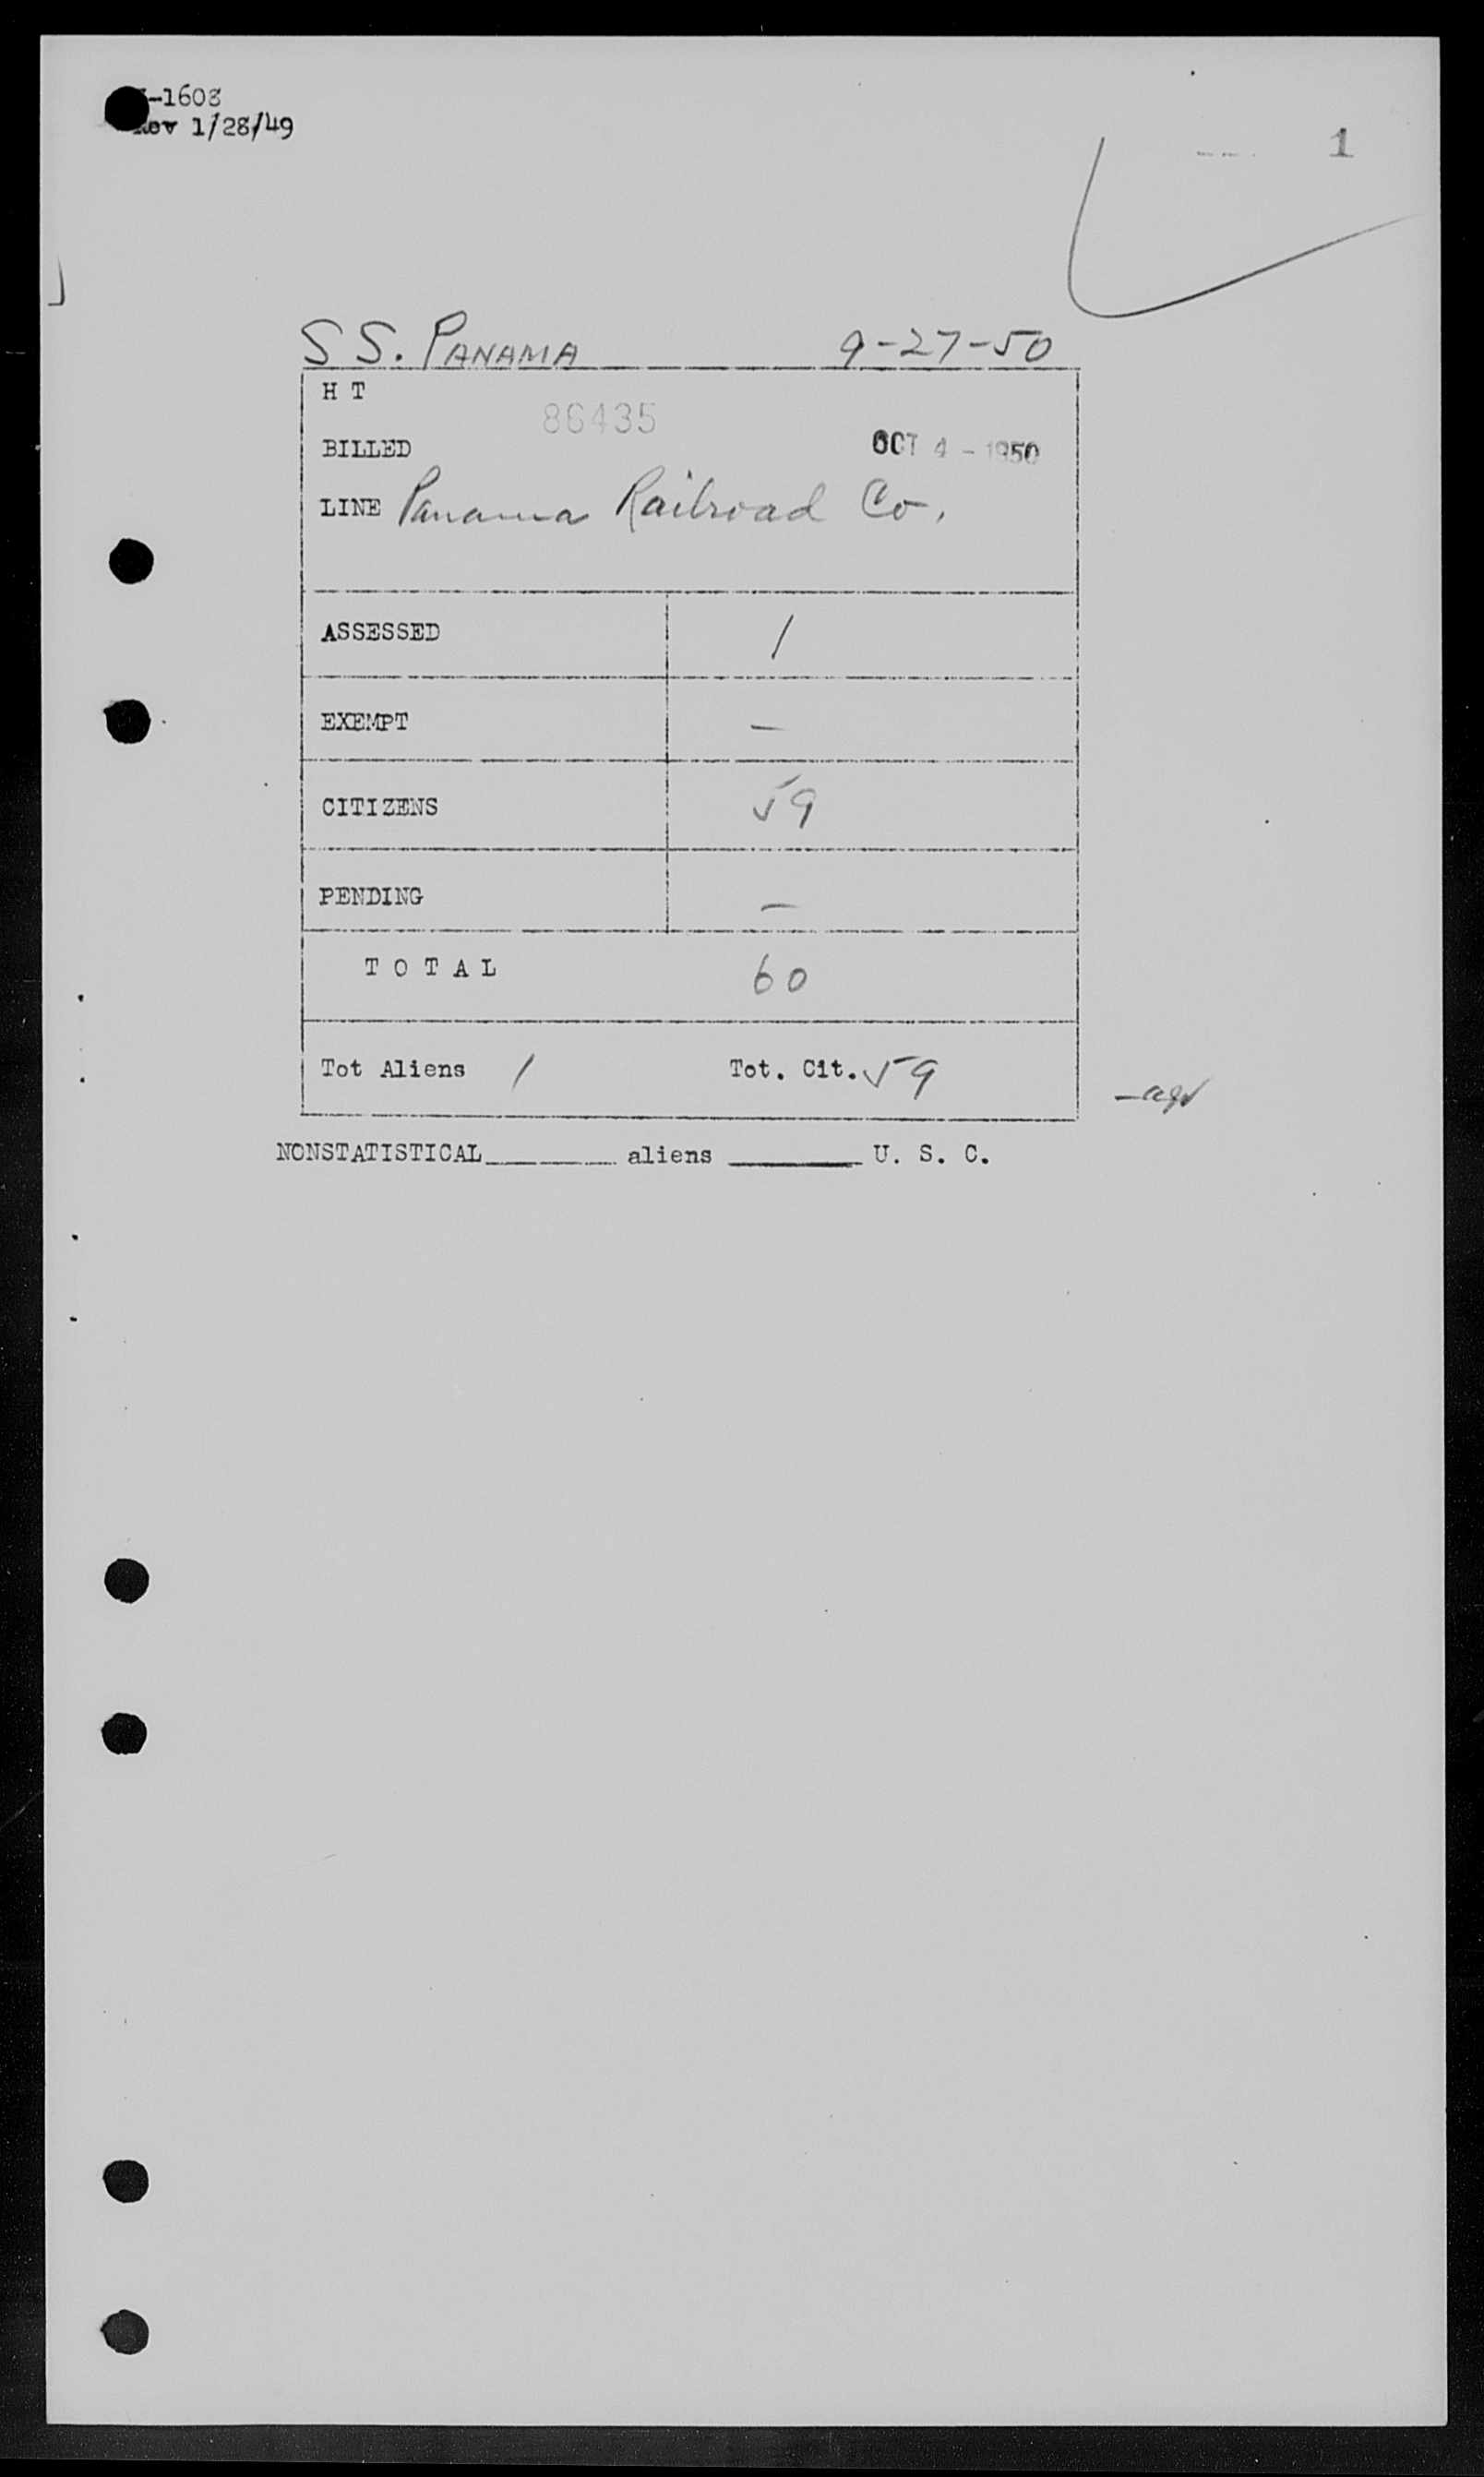 -1608
Rev 1/28/49
1
SS. PANAMA 9-27-50
H T
86435
BILLED OCT 4 - 1950
LINE Panama Railroad Co.
ASSESSED 1
EXEMPT —
CITIZENS 59
PENDING —
T O T A L 60
Tot Aliens 1 Tot. Cit. 59
NONSTATISTICAL______ aliens ______ U. S. C.